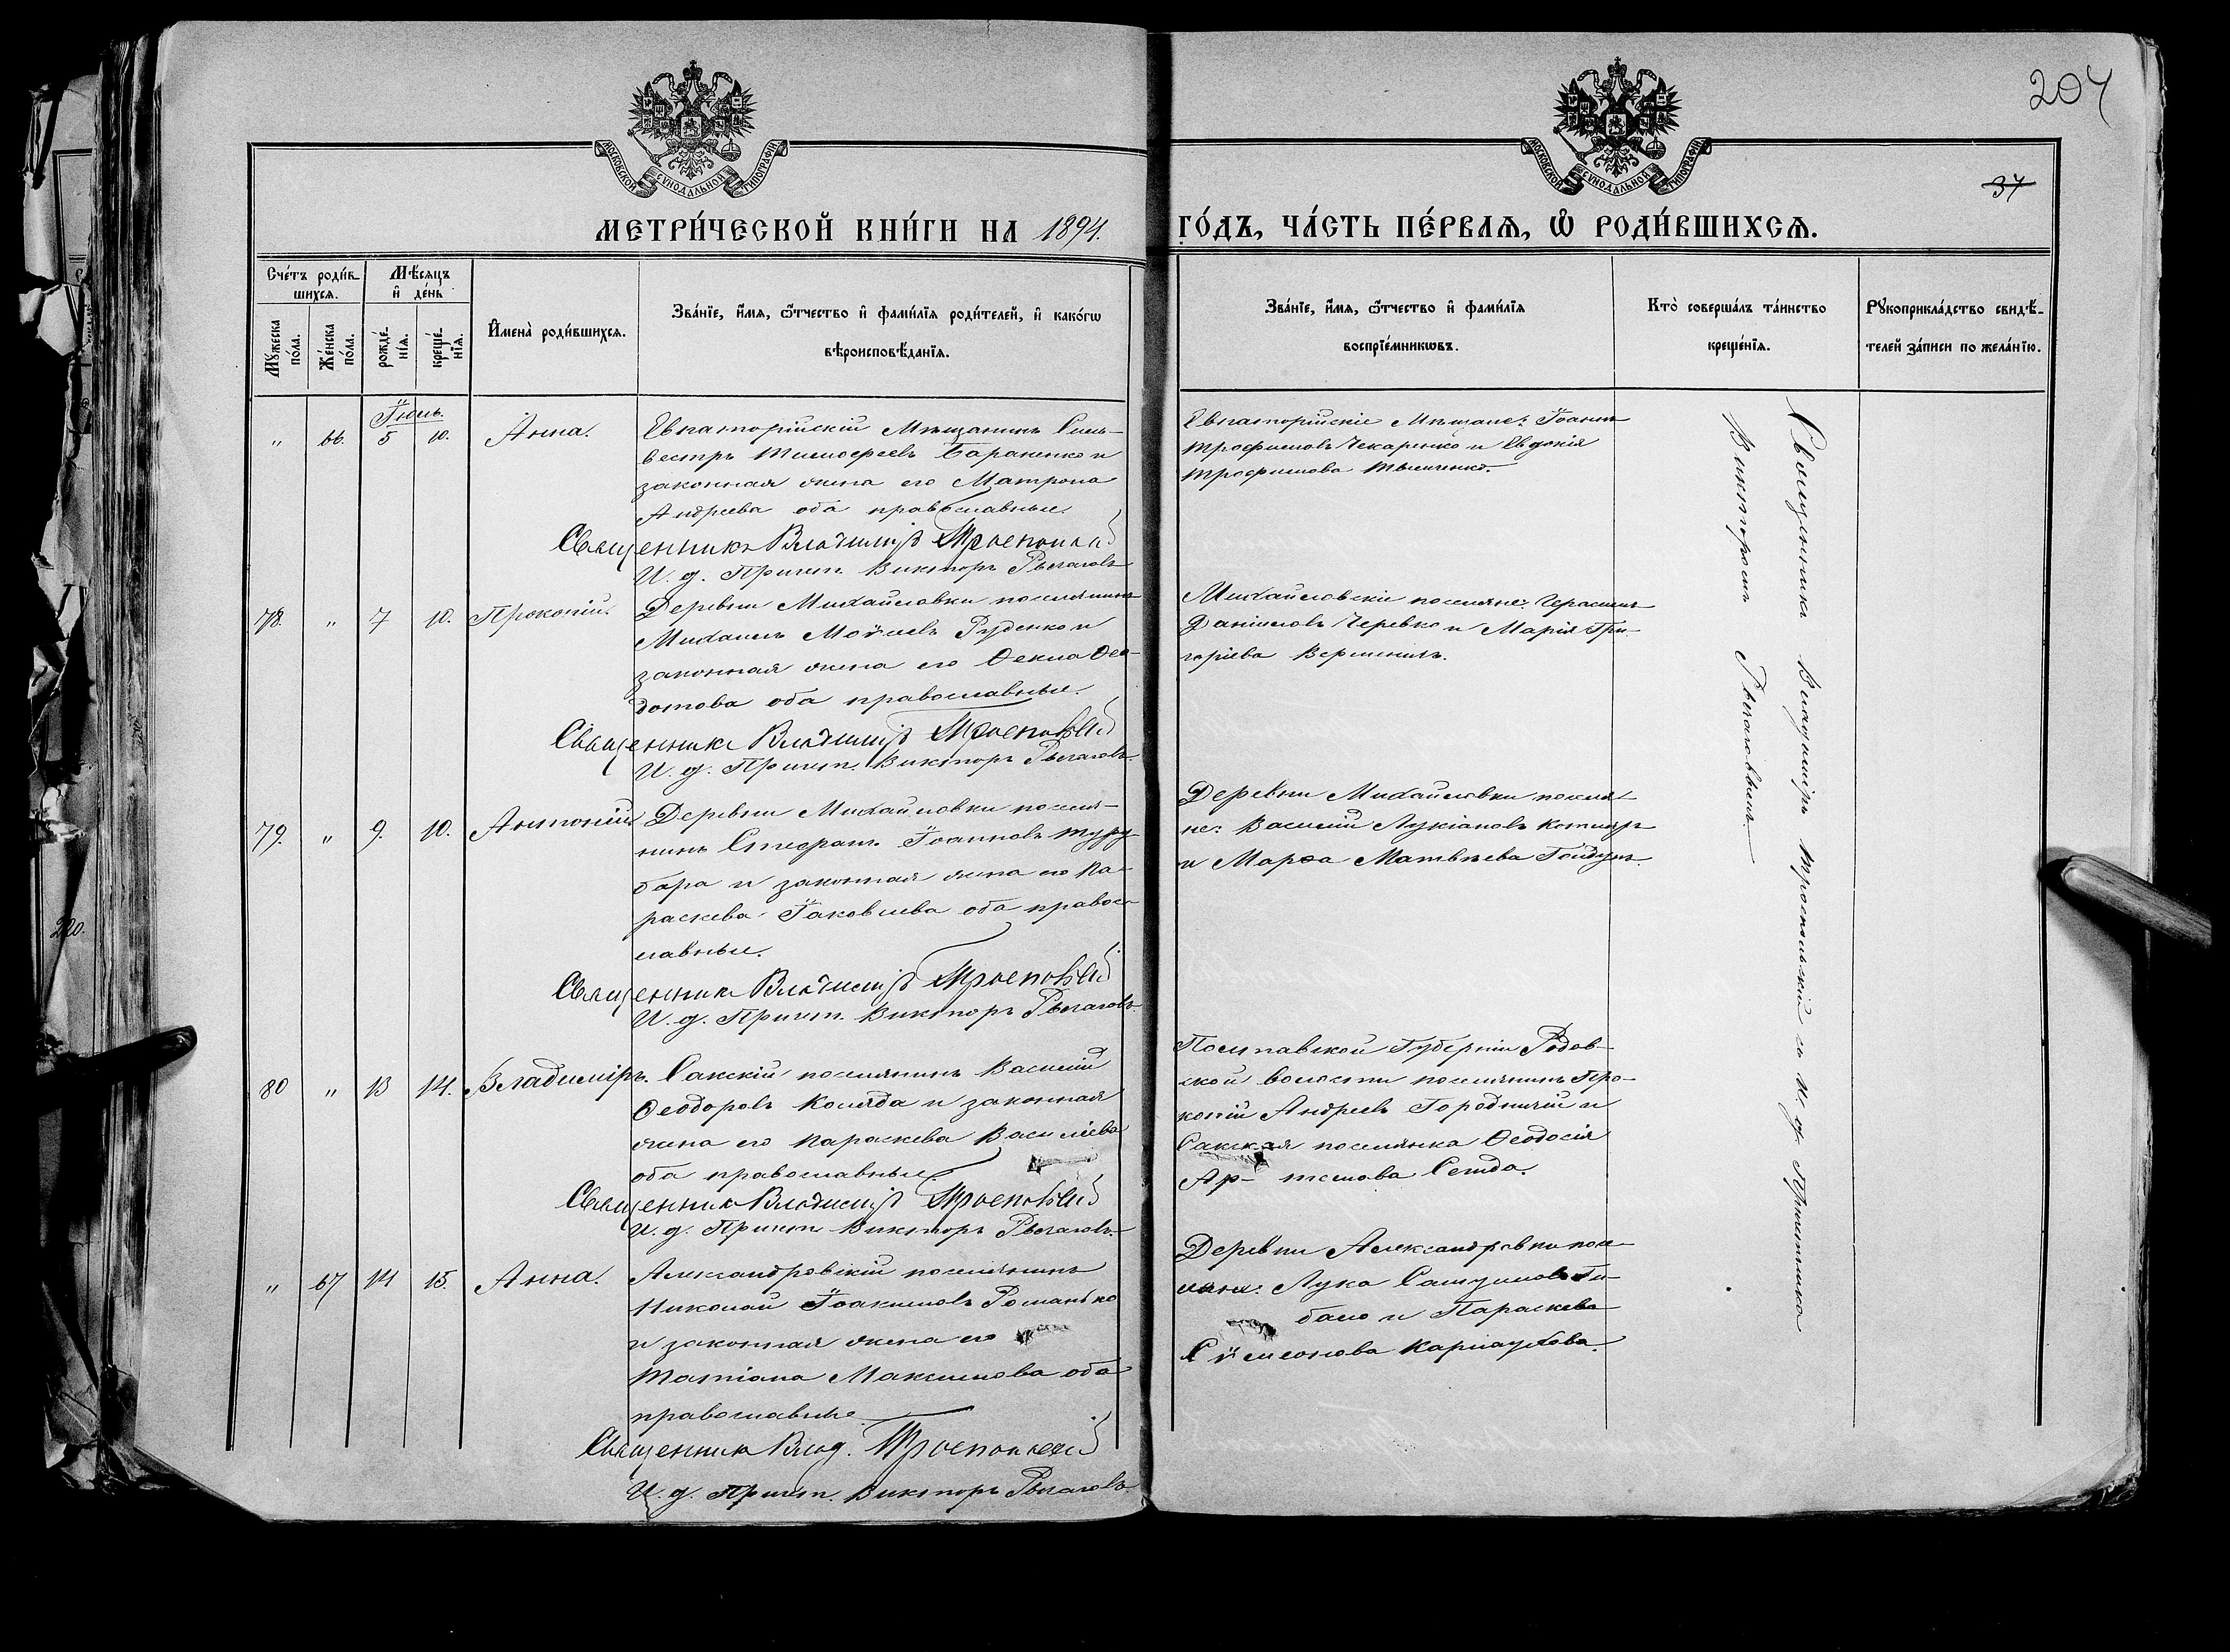 204
37
МОСКОВСКОЙ СѴНОДАЛЬНОЙ ТИПОГРАФІИ
МОСКОВСКОЙ СѴНОДАЛЬНОЙ ТИПОГРАФІИ
МЕТРИ́ЧЕСКОЙ КНИ́ГИ НА 1894. ГО́ДЪ, ЧА́СТЬ ПЕ́РВАѦ, Ѿ РОДИ́ВШИХСѦ.
Сче́тъ роди́в-
шихсѧ.
Мꙋ́жеска по́ла.
Же́нска по́ла.
Мѣ́сѧцъ
и҆ де́нь
рожде́-
нїѧ.
креще́-
нїѧ.
И҆мена̀ роди́вшихсѧ.
Зва́нїе, и҆́мѧ, ѻ҆́тчество и҆ фами́лїѧ роди́телей, и҆ како́гѡ
вѣроисповѣ́данїѧ.
Зва́нїе, и҆́мѧ, ѻ҆́тчество и҆ фами́лїѧ
воспрїе́мникѡвъ.
Кто̀ соверша́лъ та́инство
креще́нїѧ.
Рꙋкоприкла́дство свидѣ́-
телей за́писи по жела́нїю.
Іюнь.
" 66. 5 10. Анна.
Евпаторійскій Мѣщанинъ Силь-
вестръ Тимофеевъ Бараненко и
законная жена его Матрона
Андреева оба православные.
Священникъ Владиміръ
И. д. Причет. Викторъ Рыгаловъ
Евпаторійскіе Мѣщане: Іоаннъ
Трофимовъ Чекаренко и Евдокія
Трофимова
78. " 7 10. Прокопій.
Деревни Михайловки поселянинъ
Михаилъ Моѵсеевъ Руденко и
законная жена его Ѳекла Ѳео-
дотова оба православные.
Священникъ Владиміръ
И. д. Причет. Викторъ Рыгаловъ
Михайловскіе поселяне: Герасимъ
Даніиловъ Черевко и Марія Гри-
горіева
79. " 9. 10. Антоній
Деревни Михайловки поселя-
нинъ Стефанъ Іоанновъ Туру-
бара и законная жена его Па-
раскева Іаковлева оба правос-
лавные.
Священникъ Владиміръ
И. д. Причет. Викторъ Рыгаловъ
Деревни Михайловки поселя-
не: Василій Лукіановъ Котляръ
и Марѳа Матвѣева
80 " 13 14. Владиміръ.
Сакскій поселянинъ Василій
Ѳеодоровъ Коляда и законная
жена его Параскева Василіева
оба православные.
Священникъ Владиміръ
И. д. Причет. Викторъ Рыгаловъ
Полтавской Губерніи
ской волости поселянинъ Про-
копій Андреевъ Городничій и
Сакская поселянка Ѳеодосія
Ар- темова
" 67 14 15. Анна.
Александровскій поселянинъ
Николай Іоакимовъ Романько
и законная жена его
Татіана Максимова оба
православные
Священникъ Влад.
И. д. Причет. Викторъ Рыгаловъ
Деревни Александровки посе-
ляне: Лука
и Параскева
Сѵмеонова
Священникъ Владиміръ съ И. д. Причетника
Викторомъ Рыгаловымъ.
220.